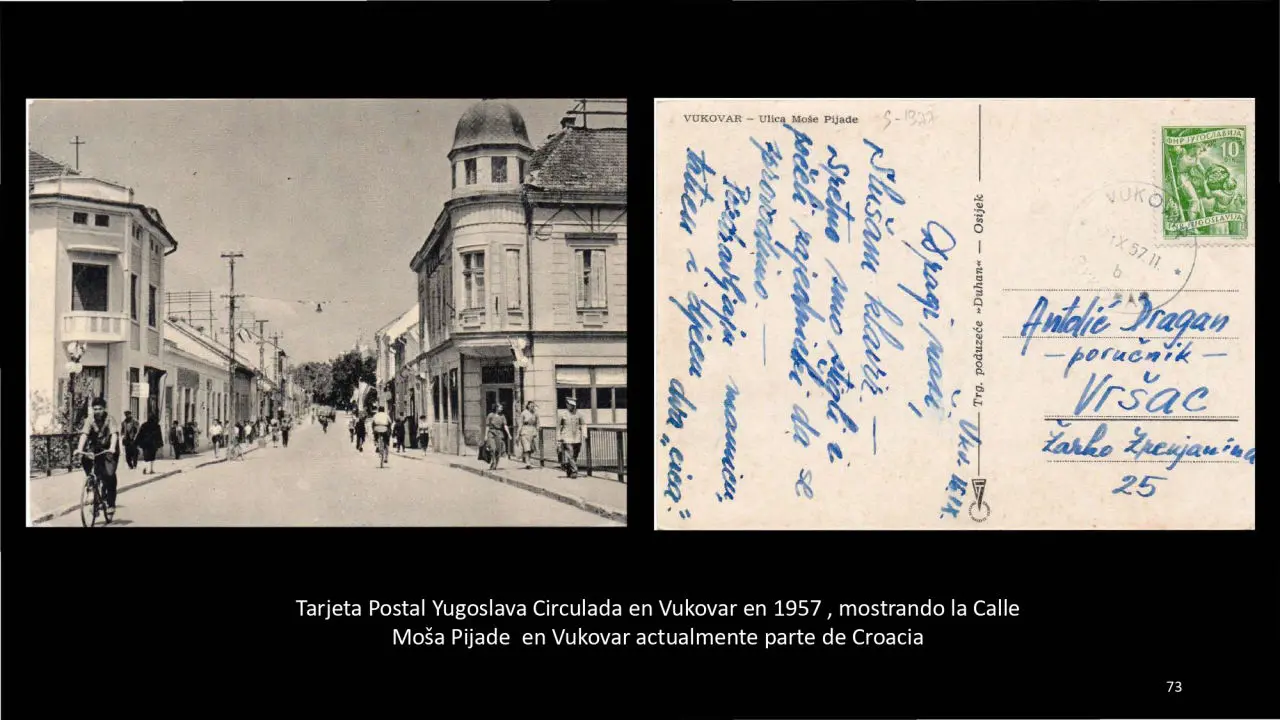 VUKOVAR — Ulica Moše Pijade
Dragi naši,
Slušam klavir —
Sretno smo stigli i
počeli pojedinke da se
provodimo. —
Pozdravljaju mamica,
tatica i djeca
Trg. poduzeće »Duhan« — Osijek
ФНР ЈУГОСЛАВИЈА
10
FNR JUGOSLAVIJA
VUKO
IX 57.11
b
Antolić Dragan
— poručnik —
Vršac
Žarko Zrenjanina
25
Tarjeta Postal Yugoslava Circulada en Vukovar en 1957 , mostrando la Calle
Moša Pijade en Vukovar actualmente parte de Croacia
73